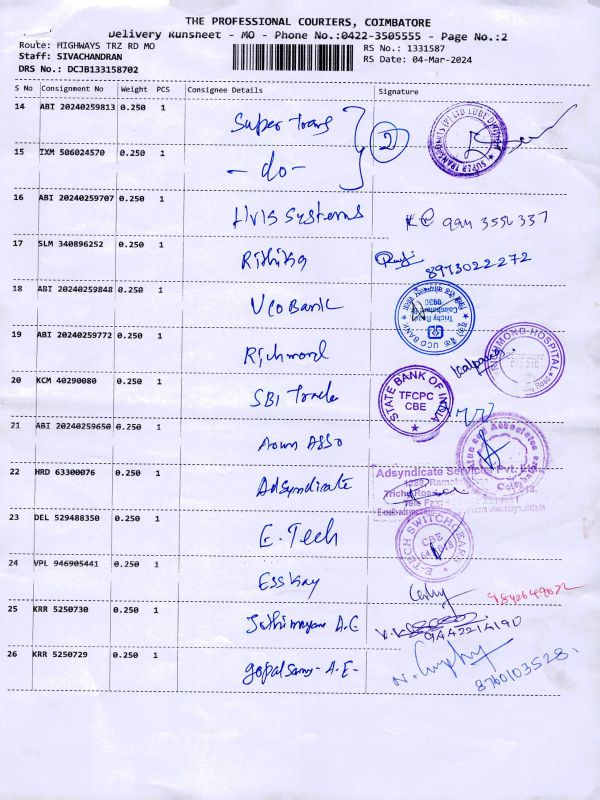 THE PROFESSIONAL COURIERS, COIMBATORE
Delivery Runsheet - MO - Phone No.:0422-3505555 - Page No.:2
Route: HIGHWAYS TRZ RD MO
RS No.: 1331587
Staff: SIVACHANDRAN
RS Date: 04-Mar-2024
DRS No.: DCJB133158702
S No Consignment No Weight PCS Consignee Details Signature
14 ABI 20240259813 0.250 1 Super Trans 2
15 IXM 506024570 0.250 1 - do -
16 ABI 20240259707 0.250 1 Systems
17 SLM 340896252 0.250 1 Rithika 8973022272
18 ABI 20240259848 0.250 1 UCO Bank
19 ABI 20240259772 0.250 1 Richmond
RICHMOND HOSPITAL
20 KCM 40290080 0.250 1 SBI Trade
STATE BANK OF INDIA
TFCPC
CBE
21 ABI 20240259650 0.250 1 Arun Asso
22 HRD 63300076 0.250 1 Adsyndicate
Adsyndicate Services Pvt. Ltd.
23 DEL 529488350 0.250 1 E. Tech
E-TECH SWITCHGEARS
CBE
24 VPL 946905441 0.250 1 Esskay
25 KRR 5250730 0.250 1 A.E 9442214190
26 KRR 5250729 0.250 1 gopalsamy - A.E - 8760103528